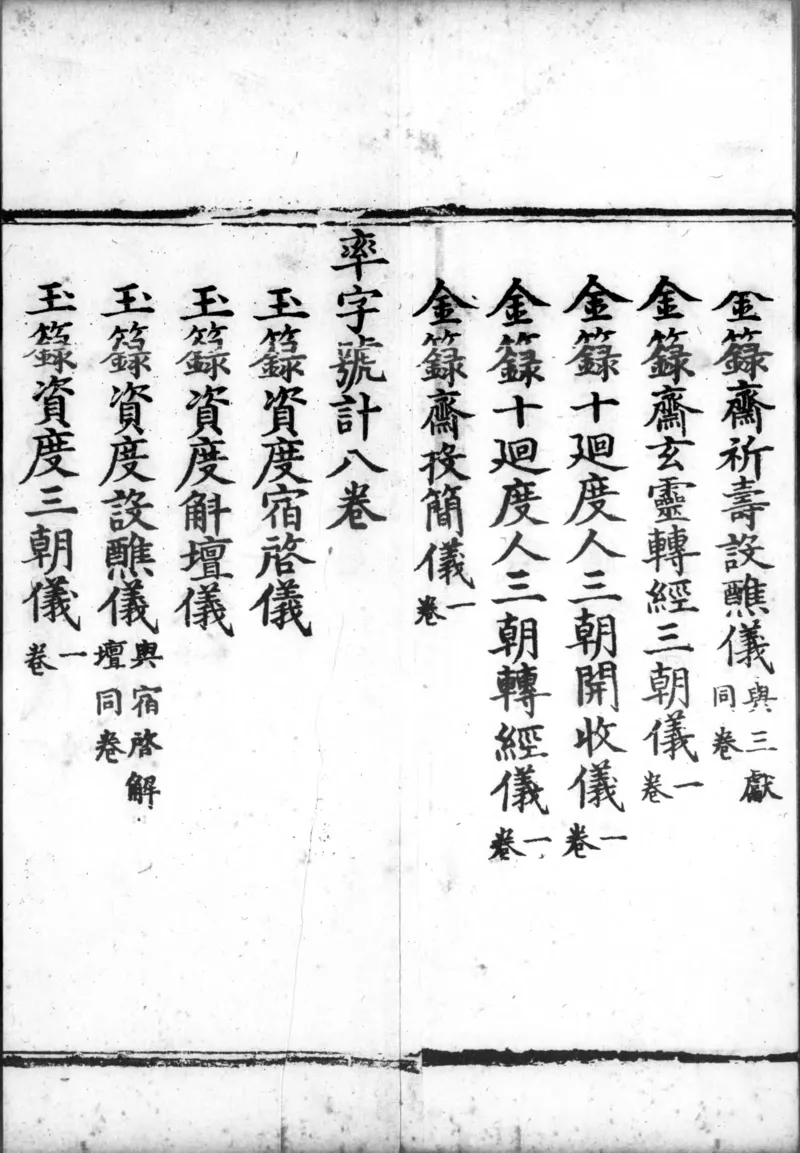 金籙齋祈壽設醮儀與三獻同卷
金籙齋玄靈轉經三朝儀一卷
金籙十廻度人三朝開收儀一卷
金籙十廻度人三朝轉經儀一卷
金籙齋投簡儀一卷
率字號計八卷
玉籙資度宿啓儀
玉籙資度解壇儀
玉籙資度設醮儀與宿啓解壇同卷
玉籙資度三朝儀一卷